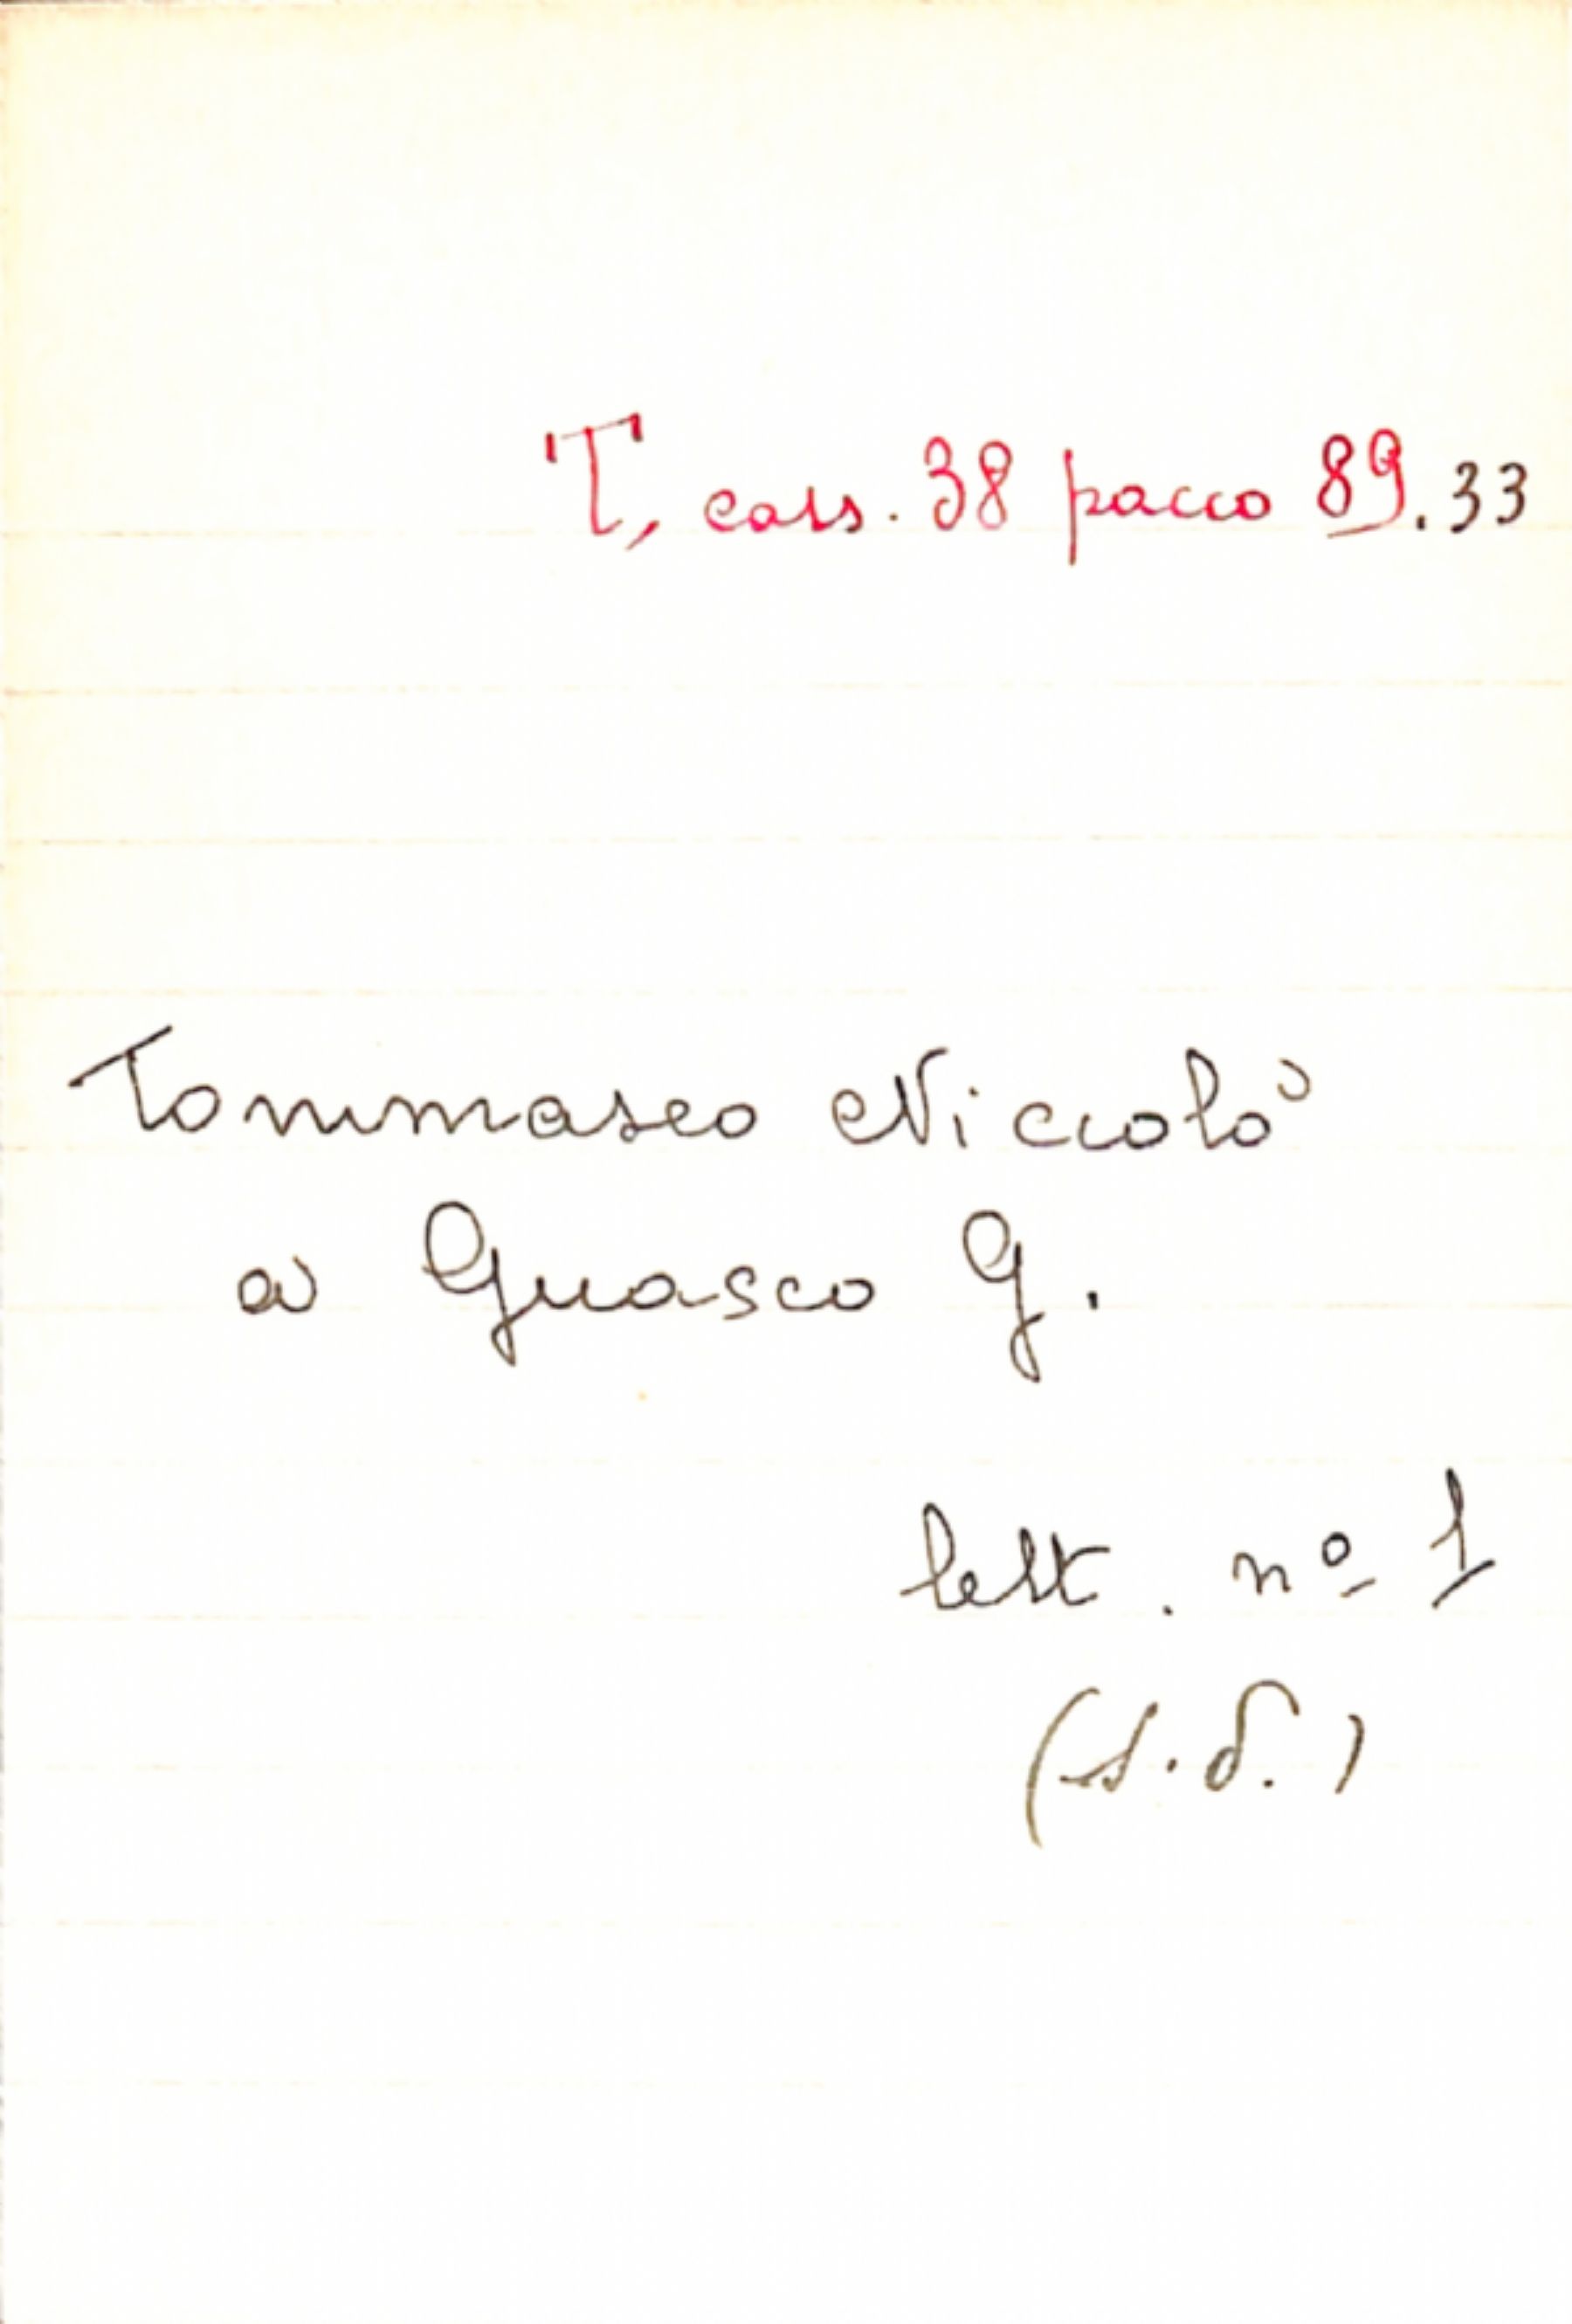 T, cass. 38 pacco 89.33
Tommaseo Niccolò
a Guasco G.
lett. nº 1
(s.d.)